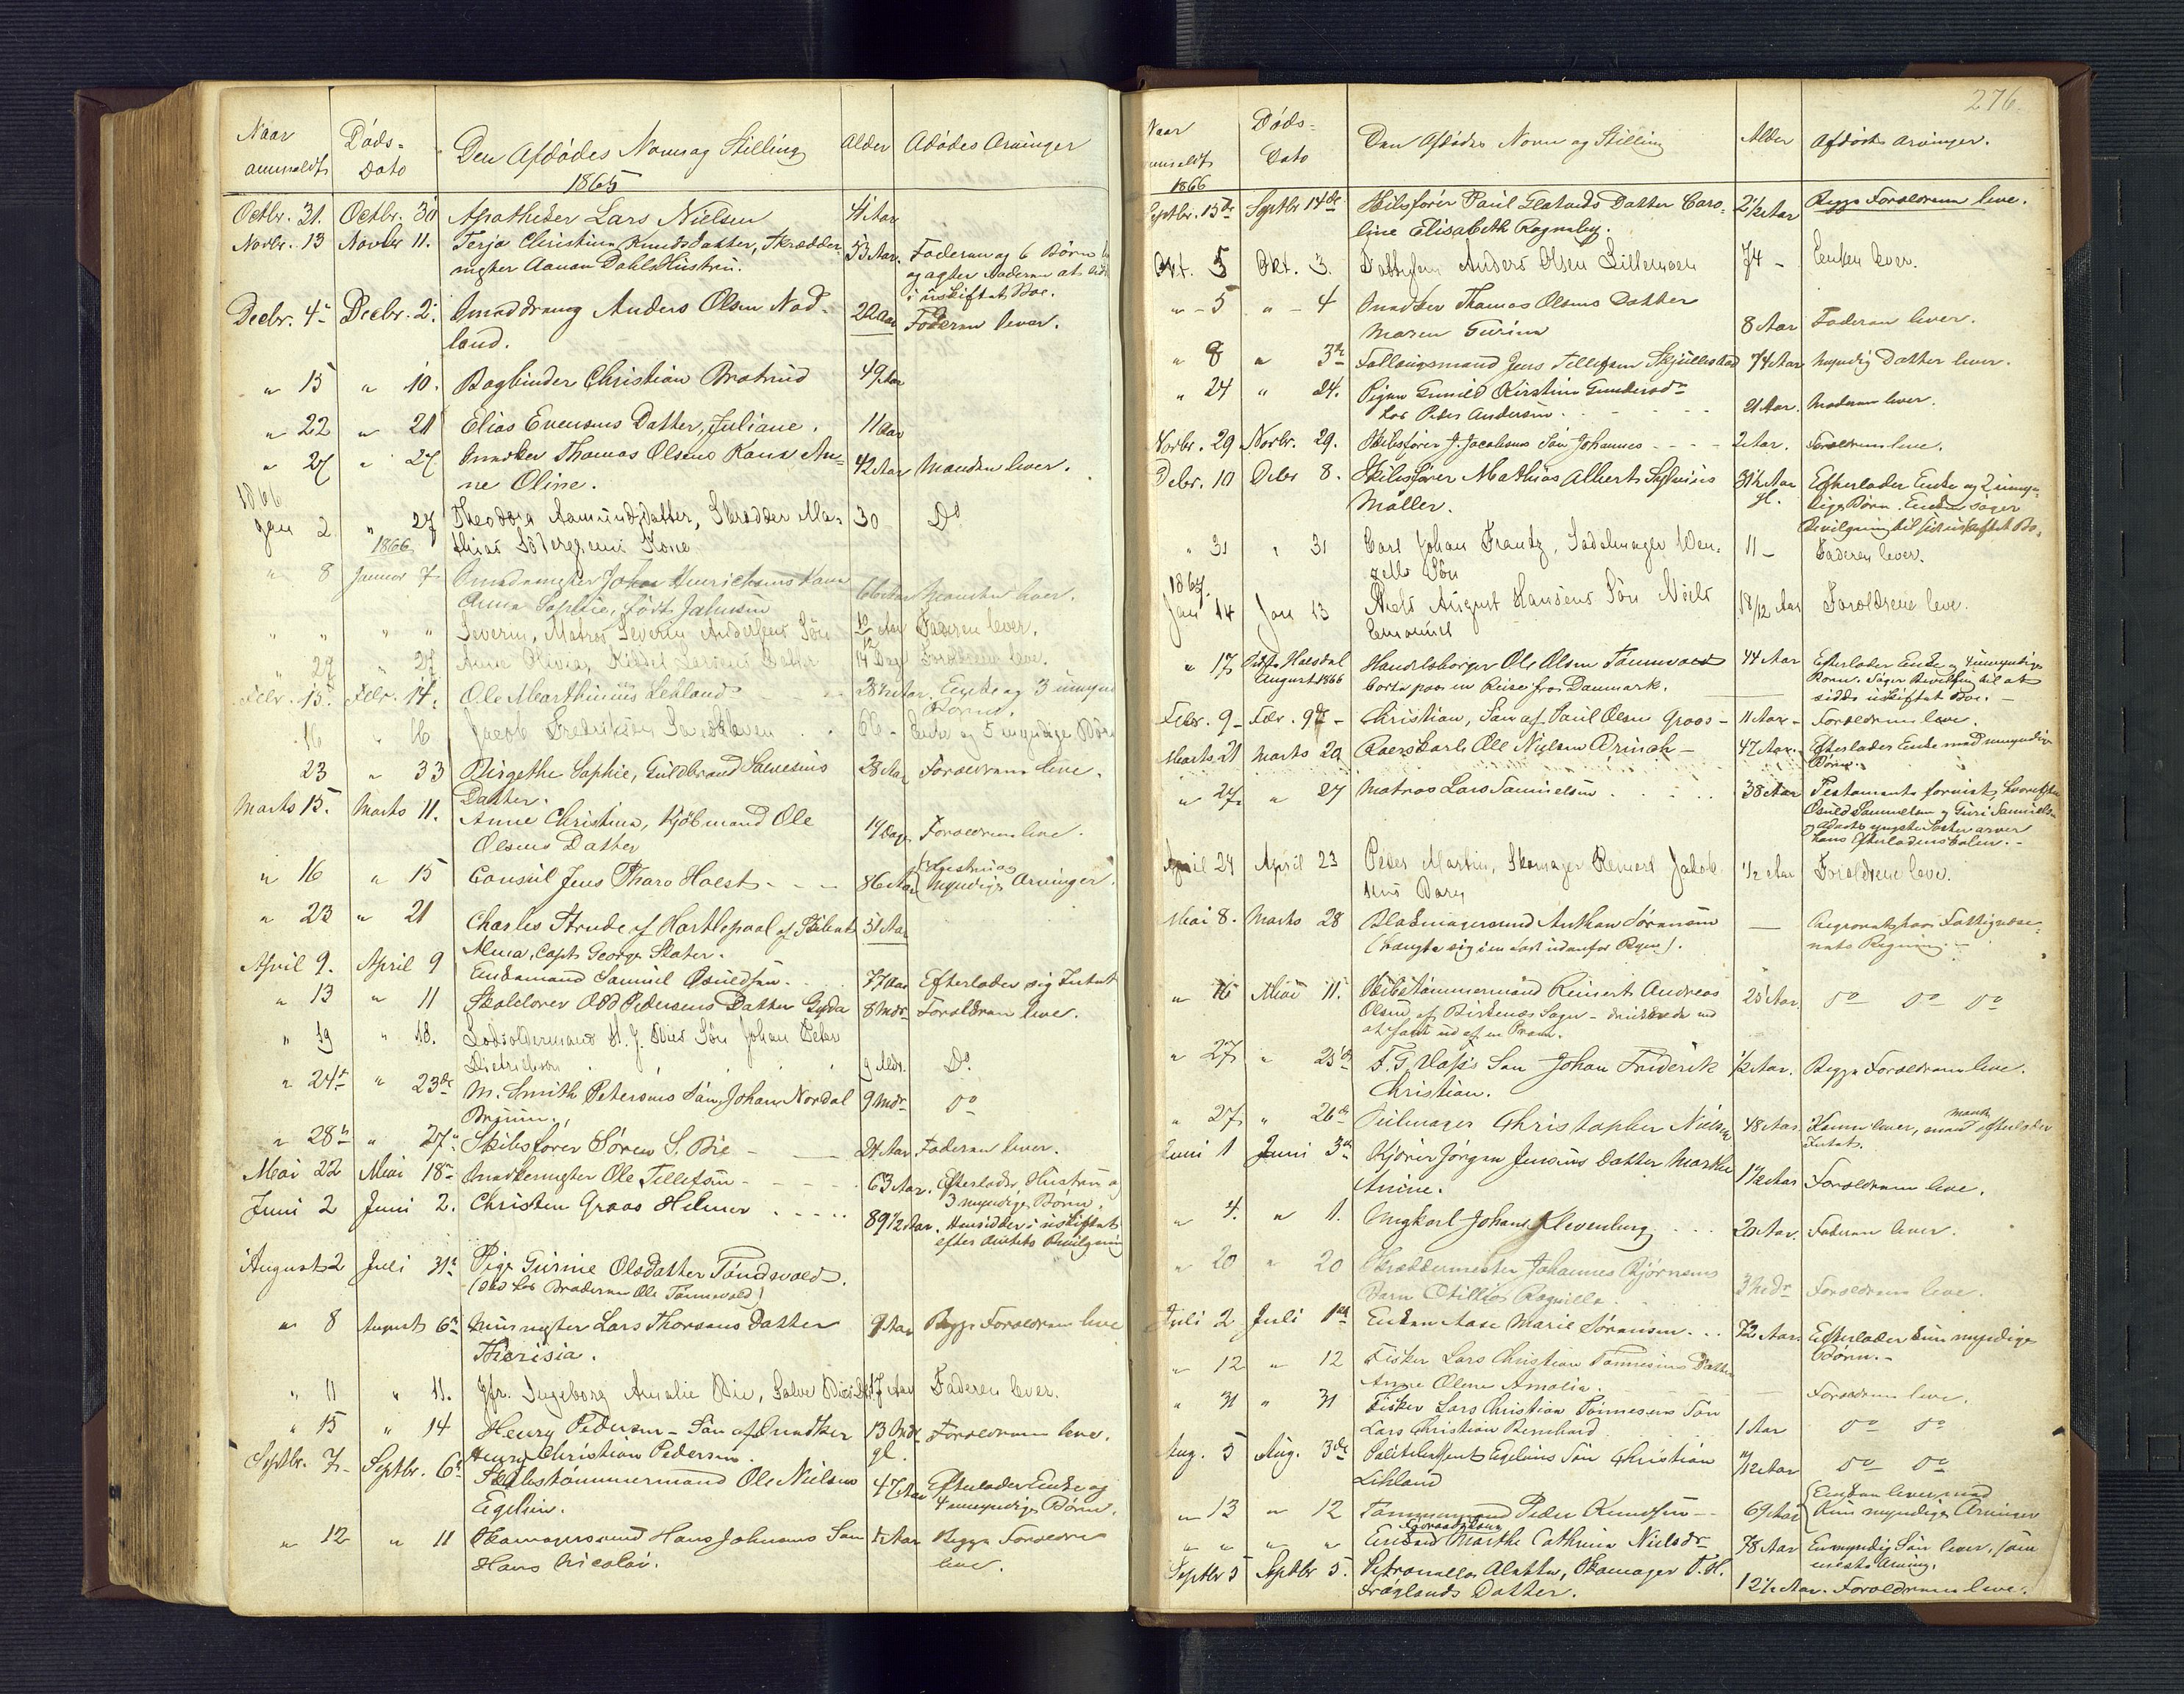 Naar
anmeldt
Døds-
Dato
Den Afdødes Navn og Stilling
1865
Alder
Afdødes Arvinger
Octbr. 31. Octbr. 30 Apotheker Lars Nielsen 41 Aar
Novbr. 13 Novbr 11. Terje Christine Knudsdatter, Skrædder- 53 Aar. Faderen og 6 Børn
mester Aanon Dahls Hustru. og agter Faderen at
i uskiftet Boe.
Decbr. 4de Decbr. 2. Smeddreng Anders Olsen Nod- 22 Aar Faderen lever.
land.
" 15 " 10. Bogbinder Christian Bratrud 49 Aar
" 22 " 21 Elias Evensens Datter, Juliane. 11 Aar
" 27 " 27 Snedker Thomas Olsens Kone An- 42 Aar Manden lever.
ne Oline.
1866
Jan 2 " 27 Theodora Aamundsdatter, Skrædder Ma- 30 Do
1866 thias Kone
" 8 Januar 7 Smedmester Johan Hinrichsens Kone
Anna Sophie, født Jahnsen 66 Aar Manden lever.
" " " " Severin, Matros Severin Andersens Søn 10/12 Aar Faderen lever.
" 29 " 27 Anne Olivia, Larsens Datter 14 Dage Forældrene leve.
Febr. 15. Febr. 14. Ole Marthinius Lekland 28 1/2 Aar. Enke og 3 umyn
Børn.
" 16 " 16 Jacob Fredriksen 66 - Enke og 5 myndige Børn
23 " 33 Birgethe Sophie, Guldbrand Salvesens 28 Aar Forældrene leve.
Datter.
Marts 15. Marts 11. Anne Christina, Kjøbmand Ole
Olsens Datter 14 Dage Forældrene leve.
" 16 " 15 Consul Jens Tharo Holst - - - 86 Aar Hustru og
myndige Arvinger.
" 23 " 21 Charles Strude af Hartlepool af Skibet 51 Aar
Alma, Capt. George Slater.
April 9. April 9 Enkemand Samuel Osuldsen. 77 Aar Efterlader sig Intet
" 13 " 11 Skolelærer Odd Pedersens Datter Gyda 8 Mdr Forældrene leve.
" 19 " 18. Lodsoldermand H. J. Bies Søn Johan Peter
Dietrichson 9 Mdr. Do.
" 24de " 23de M. Smith Petersens Søn, Johan Nordal 9 Mdr Do
Bruun.
" 28de " 27de Skibsfører Søren S. Bie - 24 Aar. Faderen lever.
Mai 22 Mai 18de Snedkermester Ole Tellefsen - - - 63 Aar. Efterlader Hustru og
3 myndige Børn.
Juni 2 Juni 2. Christen Graas Helmer . . . . 89 1/2 Aar. Hensidder i uskiftet
efter Amtets Bevilgning
August 2 Juli 31te Pige Gurine Olsdatter Tønnevold.
(Død hos Broderen Ole Tønnevold)
" 8 August 6te Muurmester Lars Thorsens Datter 9 Aar Begge Forældrene leve
Therisia.
" 11 " 11. Jfr. Ingeborg Amalie Bie, Salve Bies Dtr 17 Aar Faderen lever.
" 15 " 14 Henry Pedersen - Søn af Snedker 13 Mdr. Forældrene leve.
Henry Christian Pedersen. gl.
Septbr. 7. Septbr. 6te Skibstømmermand Ole Nielsen 47 Aar Efterlader Enke og
Egelien. 4 umyndige Børn.
" 12 " 11 Skomagersvend Hans Johnsens Søn Aar Begge Forældre
Hans Nicolai. leve.
276
Naar
anmeldt
1866
Døds-
Dato
Den Afdødes Navn og Stilling
Alder
Afdødes Arvinger.
Septbr. 15de Septbr 14de Skibsfører Paul Glatveds Datter Caro- 2 1/2 Aar Begge Forældrene leve.
line Elisabeth Ragnaley.
Okt. 5 Okt. 3. Fattiglem Anders Olsen Lillemoen 74 - Enken lever.
" - 5 " - 4 Snedker Thomas Olsens Datter
Maren Gurine 8 Aar Faderen lever.
" 8 " 3de Follaugsmand Jens Tellefsen Skjullestad 74 Aar Myndig Datter lever.
" 24 " 24. Pigen Gunild Kirstine Gundersd.
hos Peder Andersen. 21 Aar. Moderen lever.
Novbr. 29 Novbr. 29. Skibsfører J. Jacobsens Søn Johannes - - - 2 Aar. Forældrene leve.
Debr. 10 Debr 8. Skibsfører Mathias Albert Sylvius 31 1/2 Aar Efterlader Enke og 2 umyn-
Møller. gl. dige Børn. Enken søger
Bevilgning til uskiftet Bo.
" 31 " 31 Carl Johan Frantz, Sadelmager Wen- 11 - Faderen lever.
zells Søn
1867.
Jan 14 Jan 13 Niels August Hansens Søn Niels 18/12 Aar Forældrene leve.
Emanuel
" 17 Handelsborger Ole Olsen Tønnevold 44 Aar Efterlader Enke og 4 umyndige
August 1866 borte paa en Reise fra Danmark. Børn. Søger Bevilling til at
sidde i uskiftet Boe. -
Febr. 9 - Febr. 9de - Christian, Søn af Paul Olsen Graas - 11 Aar - Forældrene leve.
Marts 21 Marts 20 Baerskarl Ole Nielsen Brinch - 47 Aar. Efterlader Enke med umyndige
Børn.
" 27 " 27 Matros Lars Samuelsen . . . . 38 Aar Testamente forvist, hvorefter
Osuld Samuelsen og Guri Samuels-
Afdødes yngste Søster arver
hans Efterladenskaber. -
April 24 April 23 Peder Martin, Skomager Reinert Jakob- 1/2 Aar Forældrene leve.
sens Barn
Mai 8. Marts 28 Blokmagersvend Anthon Sørensen - Begravet paa Fattigvæse-
(hængte sig i en udenfor Byen). nets Regning. -
" 16 Mai 11. Skibstømmermand Reinert Andreas 25 Aar. Do Do Do
Olsen af Birkenæs Sogn - druknede ved
at falde ud af en Pram.
" 27 " 25de F. G. Søn Johan Friderik 1/2 Aar. Begge Forældrene leve.
Christian.
" 27 " 26de Christopher Nielsen 48 Aar Konen lever, efterlader
Intet.
Juni 1 Juni 3de Kjører Jørgen Jensens Datter Marthe
Anine. 1 1/2 Aar Forældrene leve.
" 4. " 1. Ungkarl Johan Klevenberg . . . 20 Aar. Faderen lever.
" 20 " 20 Skræddermester Johannes Bjørnsens
Barn Otillia Ragnilla. 3 Mdr Forældrene leve.
Juli 2 Juli 1ste Enken Aase Marie Sørensen . . 72 Aar. Efterlader kun myndige
Børn. -
" 12 " 12 Fisker Lars Christian Tønnesens Datter
Anne Oline Amalia. - Forældrene leve.
" 31 " 31 Fisker Lars Christian Tønnesens Søn
Lars Christian Bernhard. 1 Aar Do Do
Aug. 5 Aug. 3de Politibetjent Egeliens Søn Christian 11/12 Aar Do Do
Lekland
" 13 " 12 Tømmermand Peder Knudsen - - 69 Aar Enken lever med
Kun myndige Arvinger
" " " " Enke Marthe Cathrine Nielsdr 78 Aar En myndig Søn lever, som
eneste Arving.
Septbr 5 Septbr 5. Petronella Alette, Skomager T. H.
Frøylands Datter. 12 1/2 Aar. Forældrene leve.